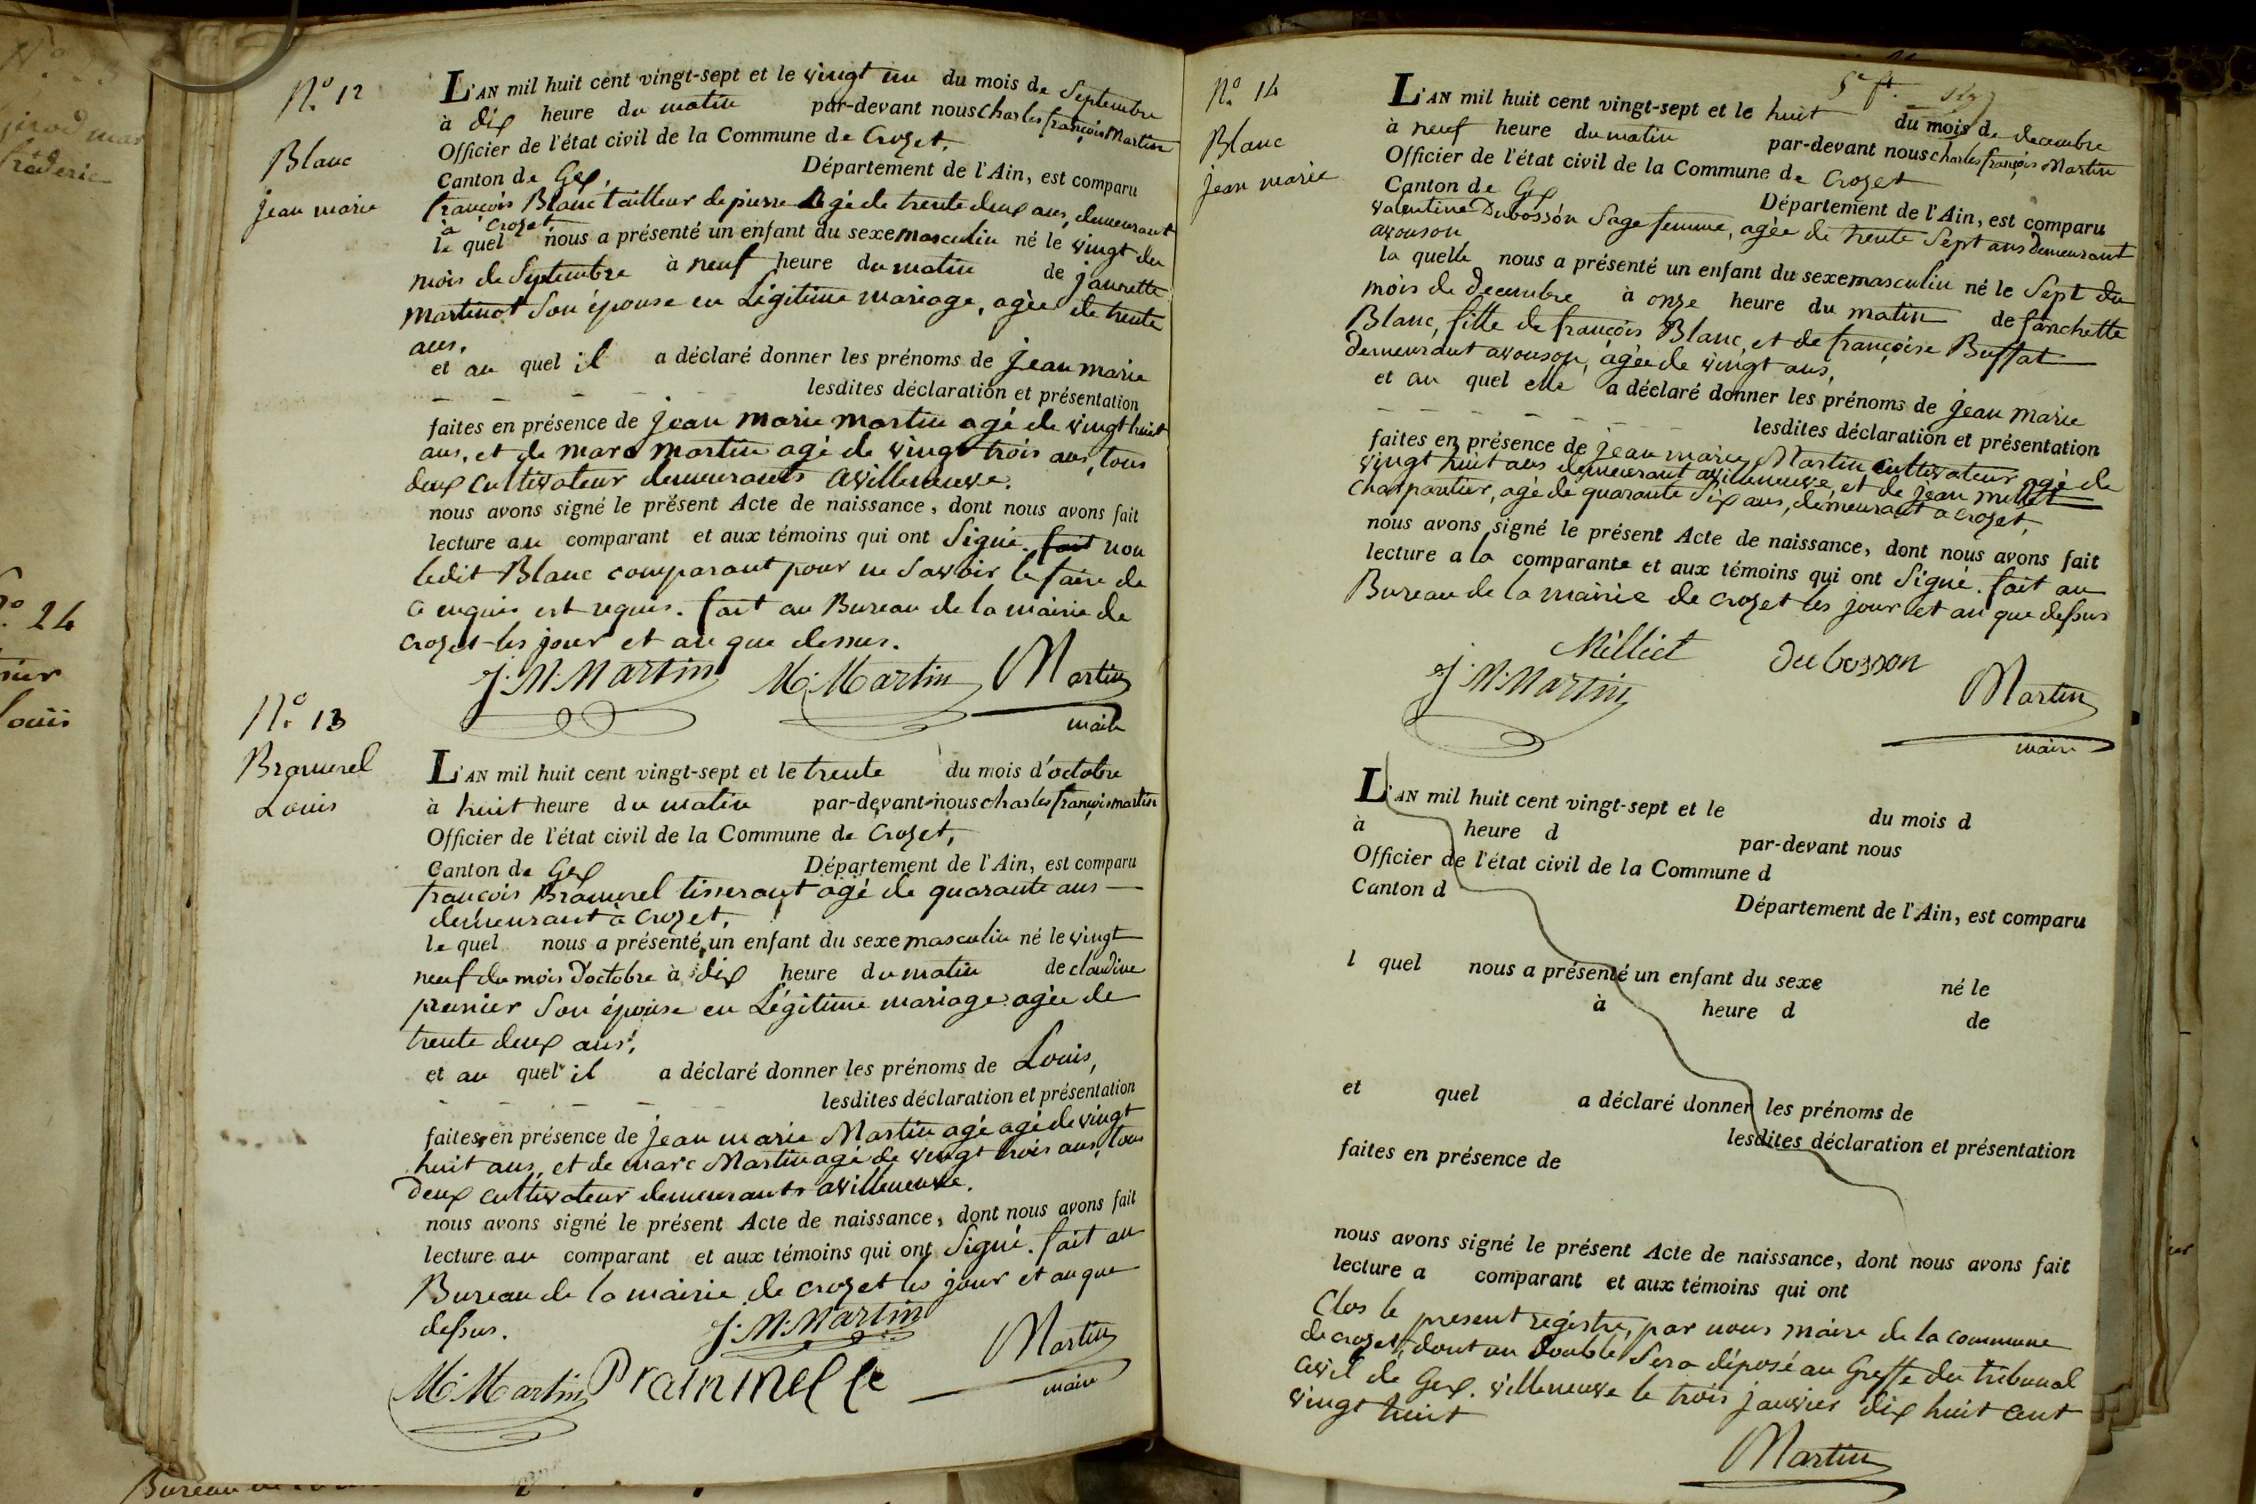 N.º 12
Blanc
jean marie
L'AN mil huit cent vingt-sept et le vingt un du mois de Septembre
à dix heure du matin par-devant nous charles françois Martin
Officier de l'état civil de la Commune de Crozet,
Canton de Gex, Département de l'Ain, est comparu
françois Blanc tailleur de pierre agé de trente deux ans, demeurant
à Crozet,
le quel nous a présenté un enfant du sexe masculin né le vingt du
mois de Septembre à neuf heure du matin de jaurette
Martinot Son épouse en Légitime mariage, agée de trente
ans,
et au quel il a déclaré donner les prénoms de jean marie
lesdites déclaration et présentation
faites en présence de jean marie martin agé de vingt huit
ans, et de marc martin agé de vingt trois ans, tous
deux cultivateur demeurants avilleneuve.
nous avons signé le présent Acte de naissance, dont nous avons fait
lecture au comparant et aux témoins qui ont Signé. fait non
ledit Blanc comparant pour ne Savoir le faire de
ce enquis est requis. fait au Bureau de la mairie de
crozet les jour et an que dessus.
J. M. Martin M. Martin Martin
maire
N.º 13
Bramerel
Louis
L'AN mil huit cent vingt-sept et le trente du mois d'octobre
à huit heure du matin par-devant nous charles françois martin
Officier de l'état civil de la Commune de Crozet,
Canton de Gex Département de l'Ain, est comparu
françois Bramerel tisserant agé de quarante ans
demeurant à Crozet,
le quel nous a présenté un enfant du sexe masculin né le vingt
neuf du mois d'octobre à dix heure du matin de claudine
prunier Son épouse en Légitime mariage agée de
trente deux ans,
et au quel il a déclaré donner les prénoms de Louis,
lesdites déclaration et présentation
faites en présence de jean marie Martin agé agé de vingt
huit ans, et de marc Martin agé de vingt trois ans, tous
deux cultivateur demeurants avilleneuve.
nous avons signé le présent Acte de naissance, dont nous avons fait
lecture au comparant et aux témoins qui ont Signé. fait au
Bureau de la mairie de crozet les jour et an que
dessus.
J. M. Martin
M. Martin Martin
maire
N.º 14
Blanc
jean marie
L'AN mil huit cent vingt-sept et le huit du mois de decembre
à neuf heure du matin par-devant nous charles françois Martin
Officier de l'état civil de la Commune de Crozet
Canton de Gex Département de l'Ain, est comparu
valentine Dubosson Sage femme, agée de trente Sept ans demeurant
avouson
la quelle nous a présenté un enfant du sexe masculin né le Sept du
mois de decembre à onze heure du matin de fanchette
Blanc, fille de françois Blanc, et de françoise Buffat
demeurant avouson, agée de vingt ans,
et au quel elle a déclaré donner les prénoms de jean marie
lesdites déclaration et présentation
faites en présence de jean marie Martin cultivateur agé de
vingt huit ans demeurant avilleneuve, et de jean milliet
charpantier, agé de quarante Six ans, demeurant a crozet,
nous avons signé le présent Acte de naissance, dont nous avons fait
lecture a la comparante et aux témoins qui ont Signé. fait au
Bureau de la mairie de crozet les jour et an que dessus
Milliet dubosson
J. M. Martin Martin
maire
L'AN mil huit cent vingt-sept et le du mois d
à heure d par-devant nous
Officier de l'état civil de la Commune d
Canton d Département de l'Ain, est comparu
l quel nous a présenté un enfant du sexe né le
à heure d de
et quel a déclaré donner les prénoms de
lesdites déclaration et présentation
faites en présence de
nous avons signé le présent Acte de naissance, dont nous avons fait
lecture a comparant et aux témoins qui ont
Clos le present registre, par nous maire de la commune
de crozet, dont un double Sera déposé au Greffe du tribunal
civil de Gex. villeneuve le trois janvier dix huit cent
vingt huit
Martin